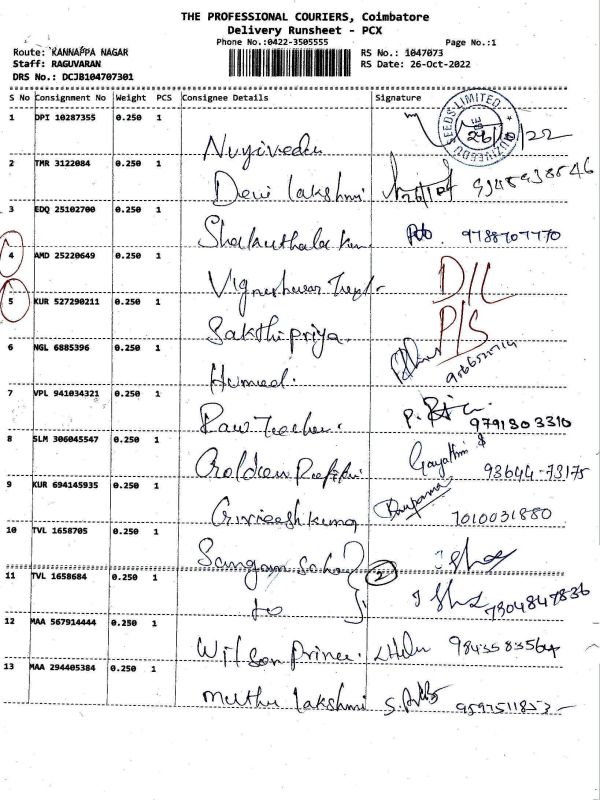 THE PROFESSIONAL COURIERS, Coimbatore
Delivery Runsheet - PCX
Phone No.:0422-3505555
Page No.:1
Route: KANNAPPA NAGAR
RS No.: 1047073
Staff: RAGUVARAN
RS Date: 26-Oct-2022
DRS No.: DCJB104707301
S No Consignment No Weight PCS Consignee Details Signature
1 DPI 10287355 0.250 1
SEEDS LIMITED
NUZIVEEDU
26/10/22
2 TMR 3122084 0.250 1 Devi lakshmi
3 EDQ 25102700 0.250 1 9788707770
4 AMD 25220649 0.250 1 D/L
5 KUR 527290211 0.250 1 Sakthipriya. P/S
6 NGL 6885396 0.250 1
7 VPL 941034321 0.250 1 9791303310
8 SLM 306045547 0.250 1 Gayathri 93644-73175
9 KUR 694145935 0.250 1 7010031880
10 TVL 1658705 0.250 1
2
11 TVL 1658684 0.250 1 do 7904847836
12 MAA 567914444 0.250 1 Wilson Prince.
13 MAA 294405384 0.250 1 muthu lakshmi 9597511853